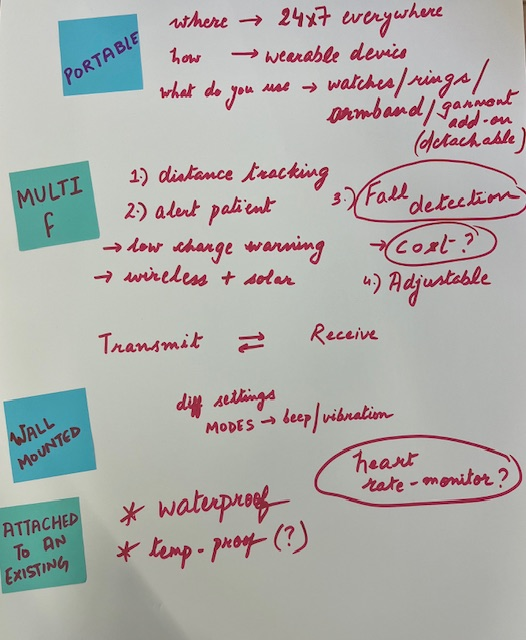 PORTABLE
where → 24x7 everywhere
how → wearable device
what do you use → watches/rings/
armband/garment
add-on
(detachable)
MULTI
f
1.) distance tracking
2.) alert patient
3.) Fall
detection
→ low charge warning
→ cost?
→ wireless + solar
4.) Adjustable
Transmit ⇄ Receive
WALL
MOUNTED
diff settings
MODES → beep/vibration
heart
rate-monitor?
ATTACHED
TO AN
EXISTING
* waterproof
* temp-proof (?)